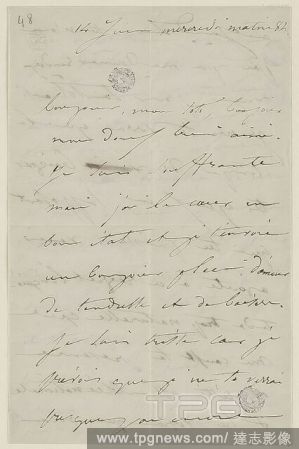 48
14 Juin mercredi matin
bonjour, mon toto, bonjour
mon doux bien aimé.
Je suis souffrante
mais j'ai le cœur en
bon état et je t'envoie
un bonjour plein d'amour
de tendresse et de baisers.
Je suis triste car je
prévois que je ne te verrai
presque pas encore
TPG
www.tpgnews.com / 達志影像